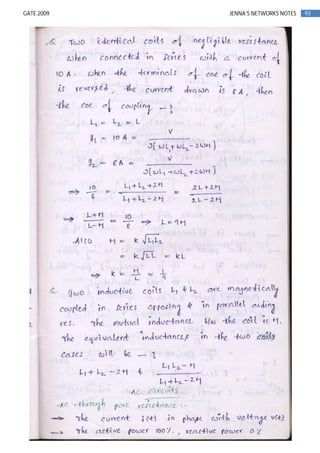 GATE 2009
JENNA'S NETWORKS NOTES 93
Q. Two identical coils of negligible resistance
when connected in series with a current of
10 A. when the terminals of one of the coil
is reversed, the current drawn is 8A, then
the coe. of coupling - ?
L₁ = L₂ = L
g₁ = 10 A = V / J[ωL₁+ωL₂-2ωM]
g₂ = 8A = V / J[ωL₁+ωL₂+2ωM]
⇒ 10/8 = L₁+L₂+2M / L₁+L₂-2M = 2L+2M / 2L-2M
⇒ L+M / L-M = 10/8 ⇒ L=9M
Also M = k √L₁L₂
= k √LL = kL
⇒ k = M/L = 1/9
Q. Two inductive coils L₁ & L₂ are magnetically
coupled in series opposing & in parallel aiding
res. The mutual inductance b/w the coil is M.
The equivalent inductances in the two coils
cases will be - ?
L₁+L₂-2M & L₁L₂-M / L₁+L₂-2M
AC circuits
AC through pure resistance :-
→ The current i(t) in phase with voltage v(t)
→ The active power 100%, reactive power 0%